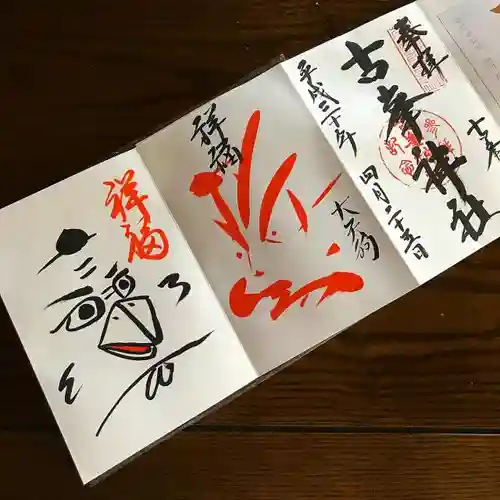 奉拝
古峯神社
古峯
平成三十年
四月二十五日
祥福
大天狗
祥福